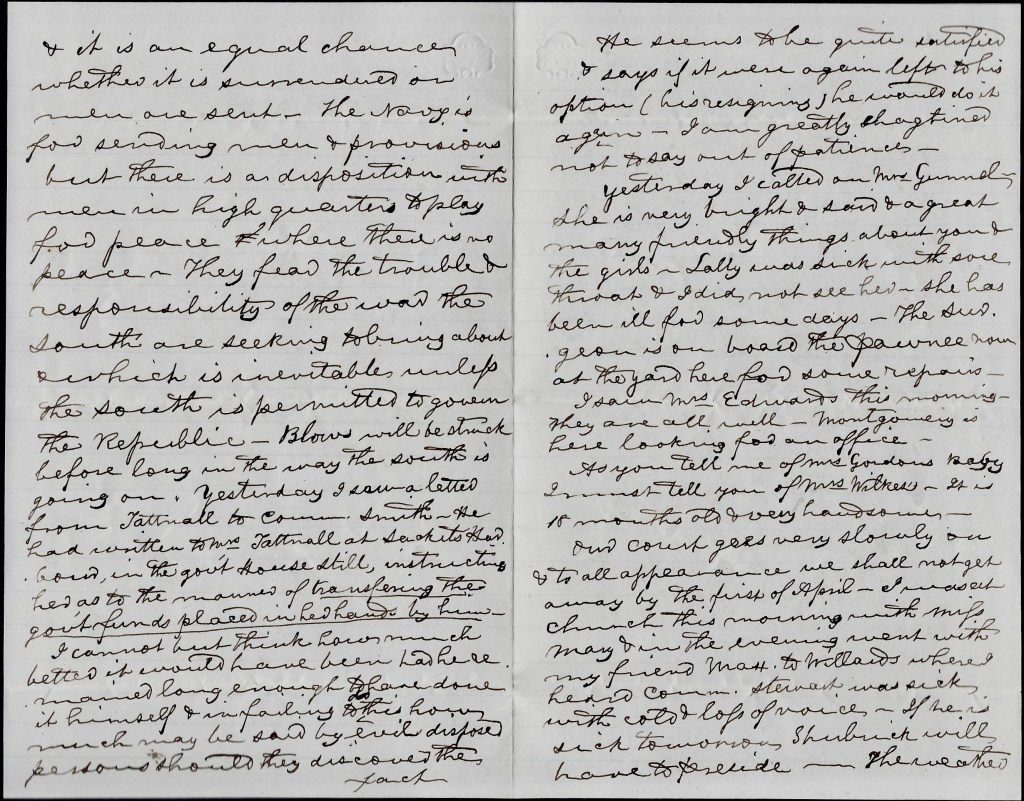 & it is an equal chance
whether it is surrendered or
men are sent - The Navy is
for sending men & provisions
but there is a disposition with
men in high quarters to play
for peace where there is no
peace - They fear the trouble &
responsibility of the war the
South are seeking to bring about
& which is inevitable unless
the South is permitted to govern
the Republic - Blows will be struck
before long in the way the South is
going on. Yesterday I saw a letter
from Tattnall to Comm. Smith - He
had written to Mrs Tattnall at Sackets Har-
bour, in the govt House still, instructing
her as to the manner of transfering the
govt funds placed in her hands by him -
I cannot but think how much
better it would have been had he re
mained long enough to have done
it himself & in failing to do this how
much may be said by evil disposed
persons should they discover the
fact
He seems to be quite satisfied
& says if it were again left to his
option (his resigning) he would do it
again - I am greatly chagrined
not to say out of patience -
Yesterday I called on Mrs Gunnel -
She is very bright & said a great
many friendly things about you &
the girls - Sally was sick with sore
throat & I did not see her - she has
been ill for some days - The Sur-
geon is on board the Pawnee now
at the yard here for some repairs -
I saw Mrs. Edwards this morning -
They are all well - Montgomery is
here looking for an office -
As you tell me of Mrs Gordons Baby
I must tell you of Mrs Wilkes - It is
18 months old & very handsome -
Our court goes very slowly on
& to all appearance we shall not get
away by the first of April - I was at
church this morning with Miss
Mary & in the evening went with
my friend to Willards where I
heard Comm. Stewart was sick
with cold & loss of voice - If he is
sick tomorrow Shubrick will
have to preside - The weather